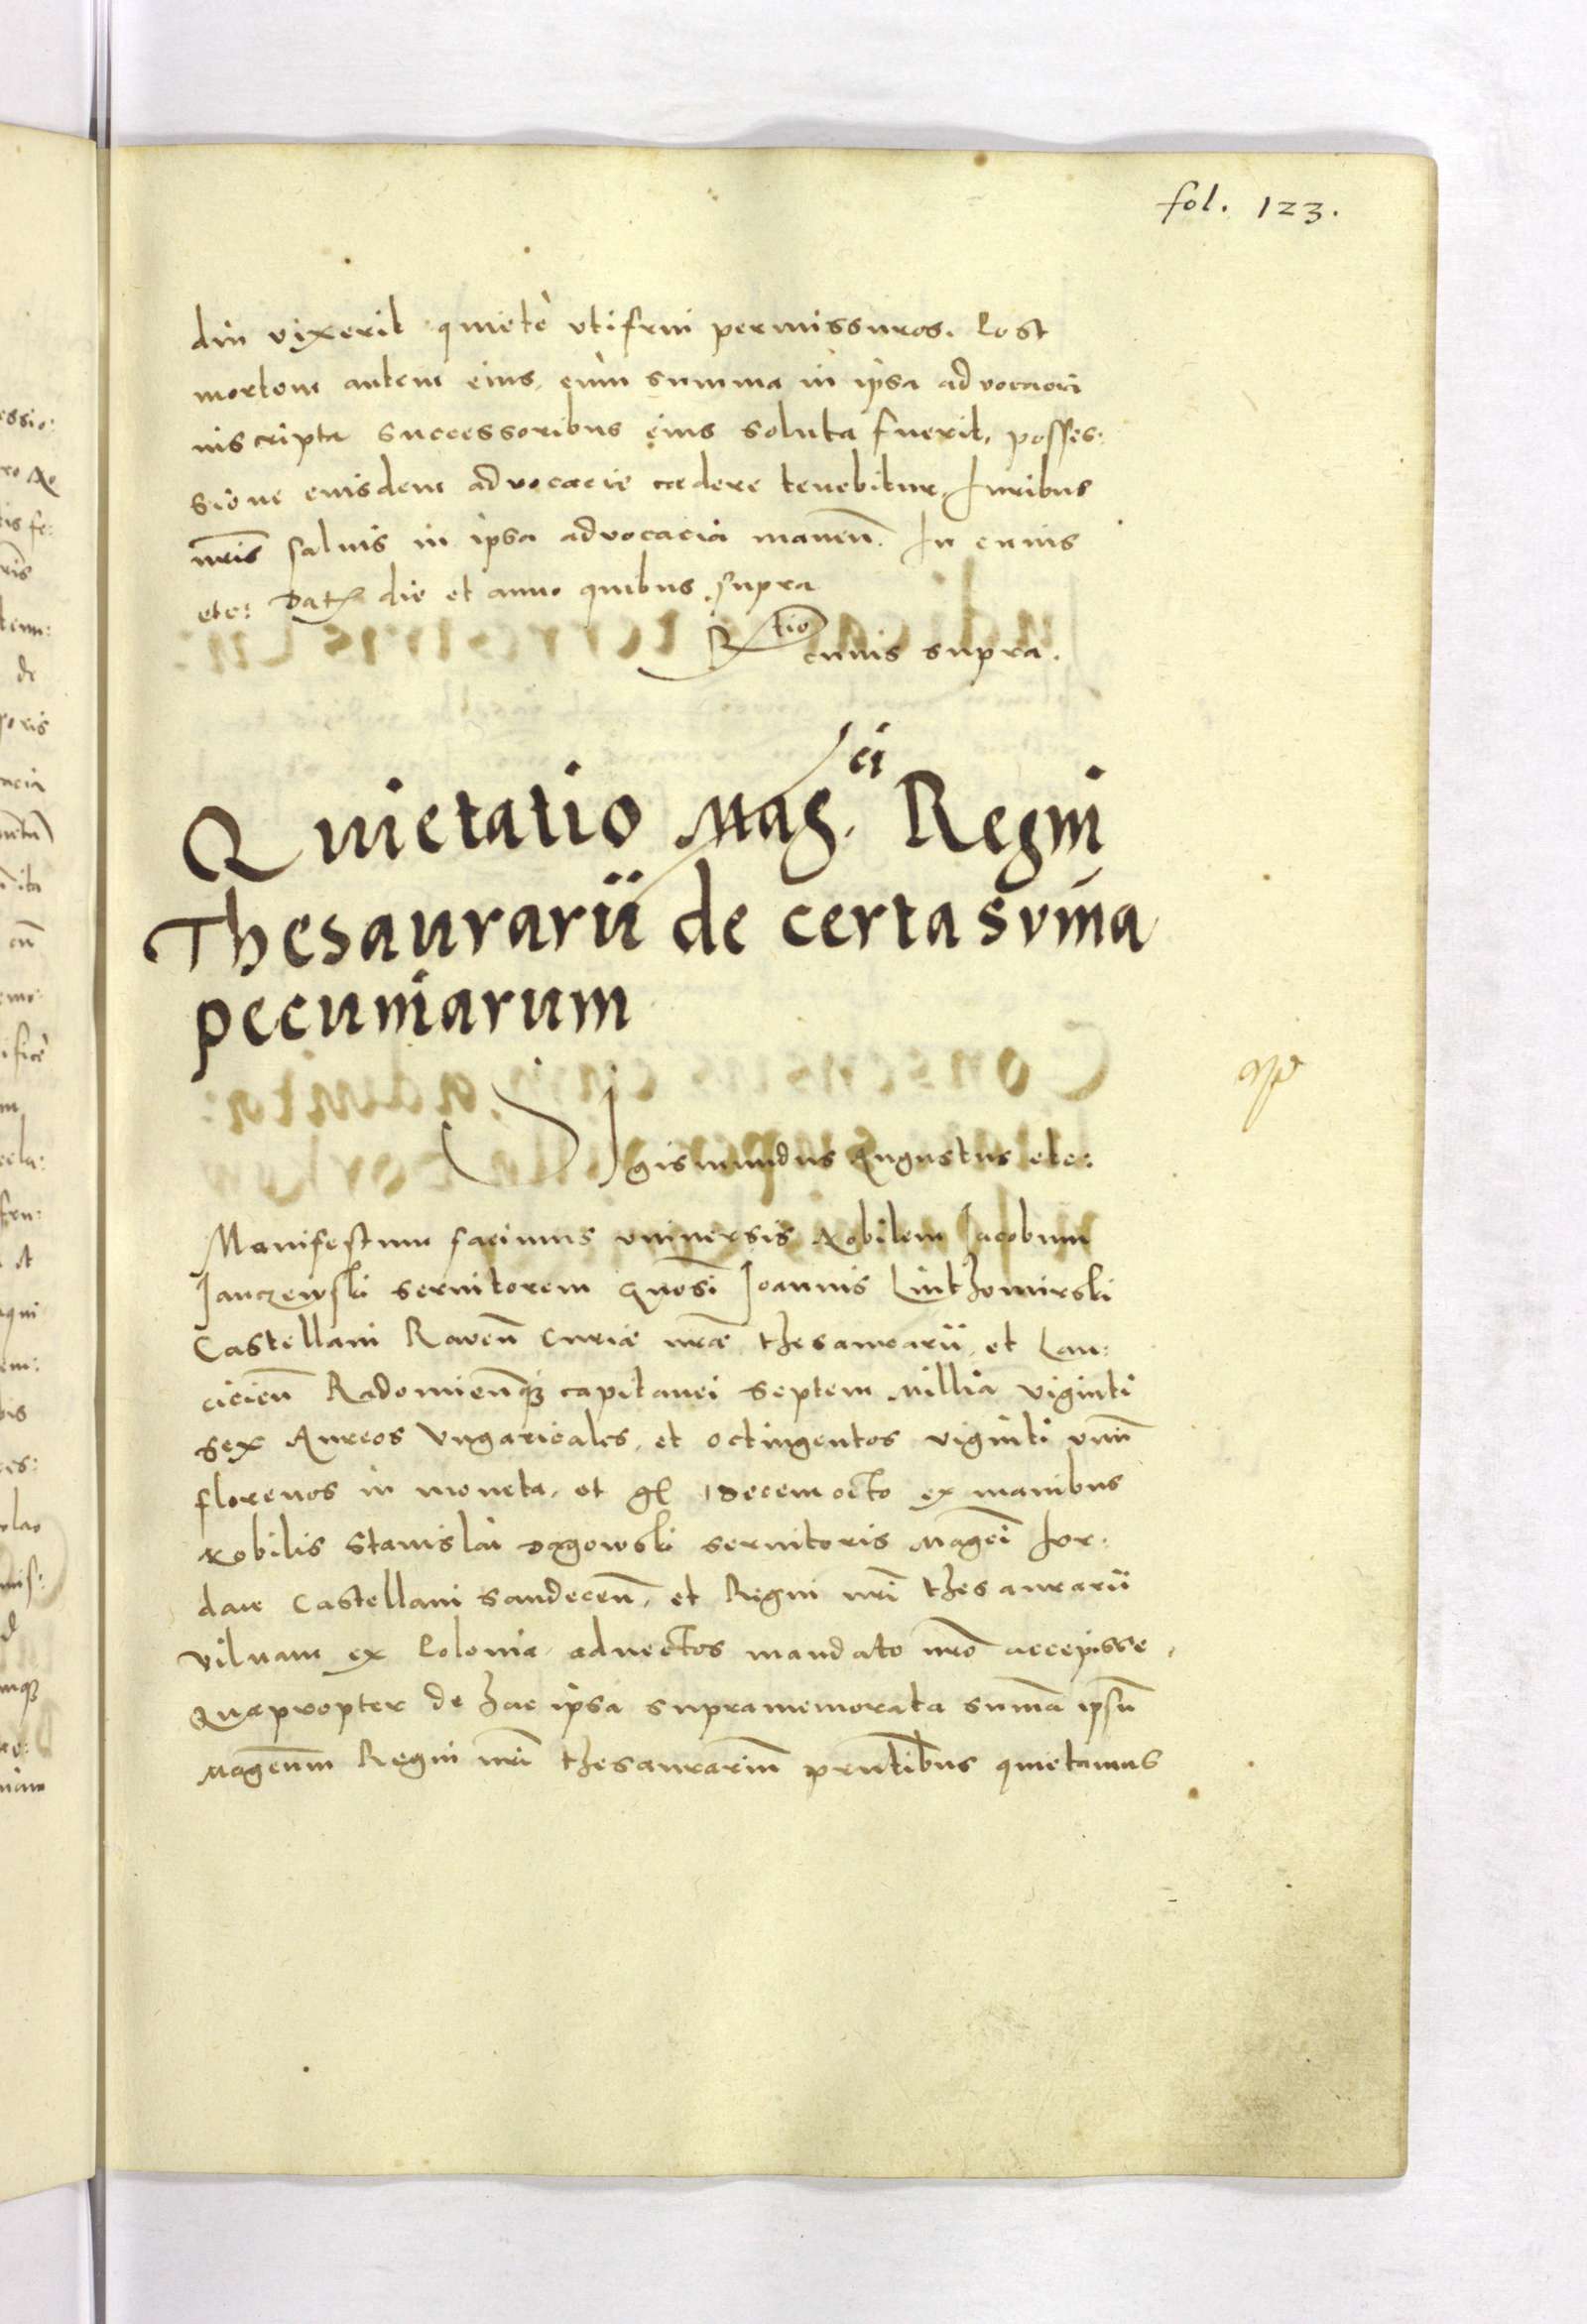 fol. 123.
diu vixerit quiete utifrui permissuros. Post
mortem autem eius, cum summa in ipsa advocaōi
inscripta successoribus eius soluta fuerit, posses:
sione eiusdem advocacie cædere tenebitur, Iuribus
nrīs salvis in ipsa advocacia maneñ. In cuius
etc: Dat. die et anno quibus supra
Rtio cuius supra.
Quietatio Mag.ci Regni
Thesaurarii de certa sūma
pecuniarum
Sigismundus Augustus etc:
Manifestum facimus universis Nobilem Jacobum
Janczewski servitorem Gnōsi Joannis Luthomirski
Castellani Raveñ Curiæ nrǣ thesaurarii, et Lan:
cicieñ Radomieñqȝ capitanei septem millia viginti
sex Aureos Ungaricales, et octingentos viginti unū
florenos in moneta, et gr decem octo ex manibus
Nobilis Stanislai servitoris Magcī Jor:
dan Castellani Sandeceñ, et Regni nrī thesaurarii
Vilnam ex Polonia advectos mandato nrō accepisse,
Quapropter de hac ipsa supramemorata sūma ipsū
Magcum Regni nrī thesaurariū prntibus quietamus